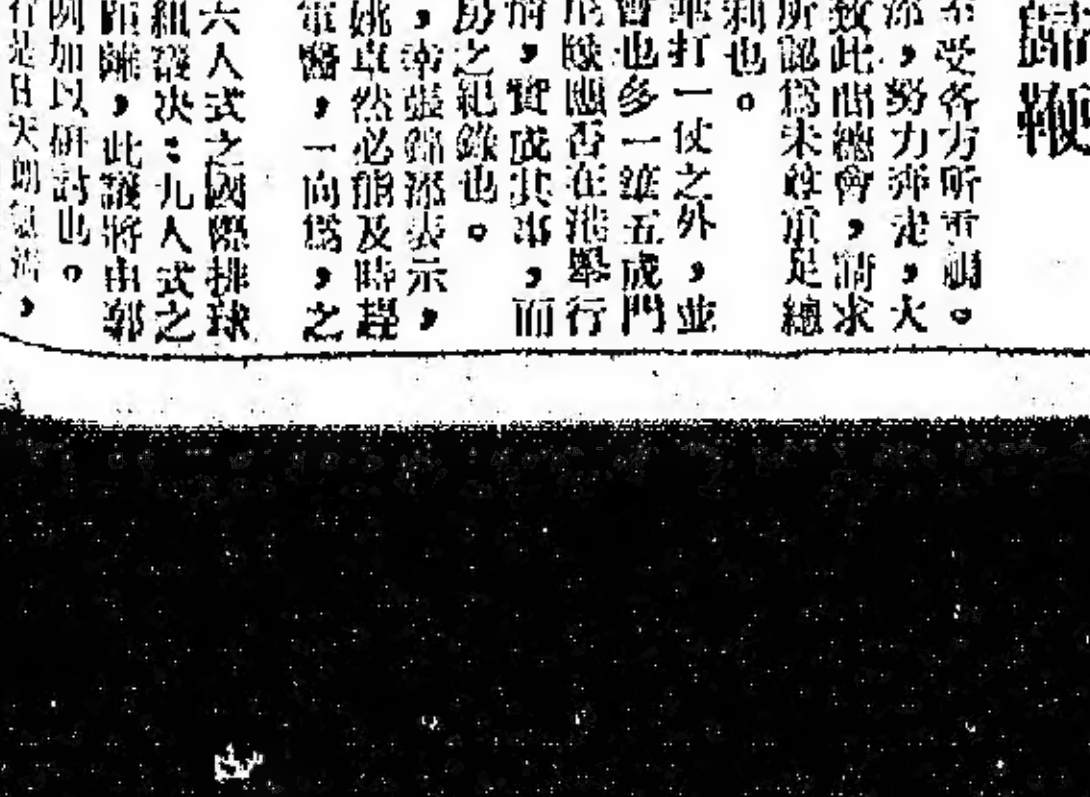 歸鞭
至受各方所重視。
添,努力奔走,大
致此間總會,請求
所認爲未尊重足總
利也。
華打一仗之外,並
會也多一筆五成門
應否在港舉行
前,實成其事,而
之紀錄也。
,幸張錦添表示,
姚卓然必能及時趕
軍醫,一向爲,之
六人式之國際排球
組議决:九人式之
,此議將由郭
例加以研討也。
行是日天朗氣淸,